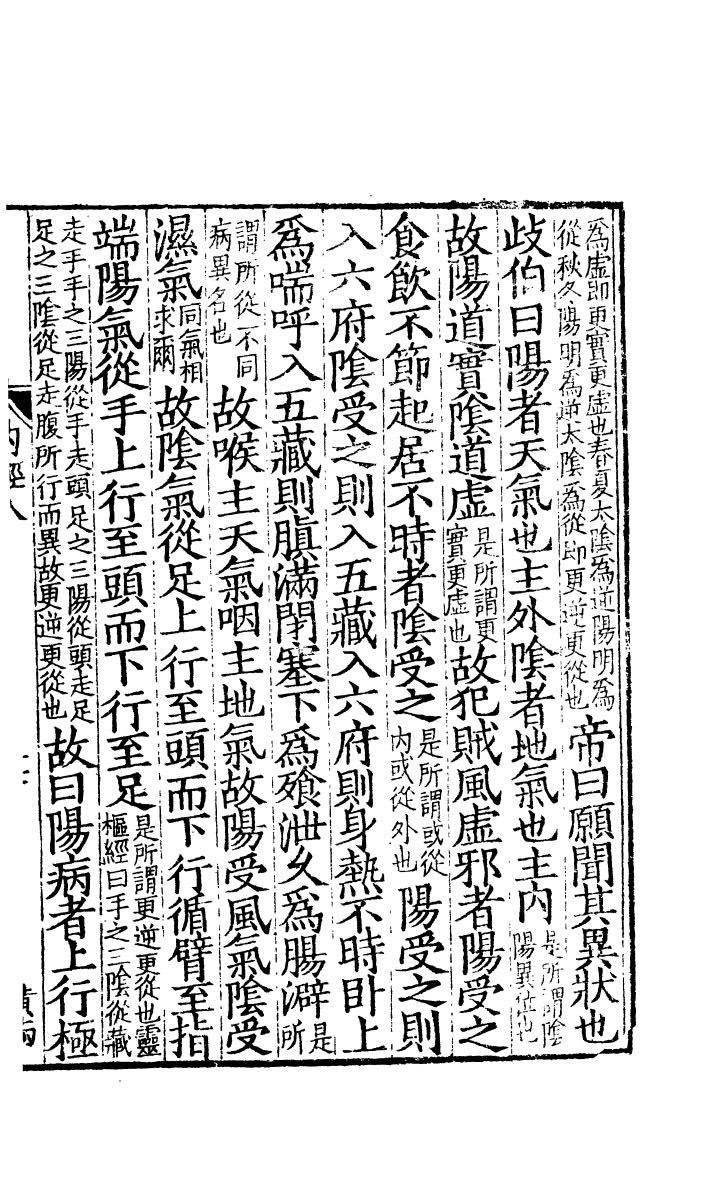 爲虛即更實更虛也春夏太陰爲逆陽明爲從秋冬陽明爲逆太陰爲從即更逆更從也帝曰願聞其異狀也
歧伯曰陽者天氣也主外陰者地氣也主內是所謂陰陽異位也
故陽道實陰道虛是所謂更實更虛也故犯賊風虛邪者陽受之
食飲不節起居不時者陰受之是所謂或從內或從外也陽受之則
入六府陰受之則入五藏入六府則身熱不時臥上
爲喘呼入五藏則䐜滿閉塞下爲飱泄久爲腸澼是所
謂所從不同病異名也故喉主天氣咽主地氣故陽受風氣陰受
濕氣同氣相求爾故陰氣從足上行至頭而下行循臂至指
端陽氣從手上行至頭而下行至足是所謂更逆更從也靈樞經曰手之三陰從藏
走手手之三陽從手走頭足之三陽從頭走足足之三陰從足走腹所行而異故更逆更從也故曰陽病者上行極
內經八